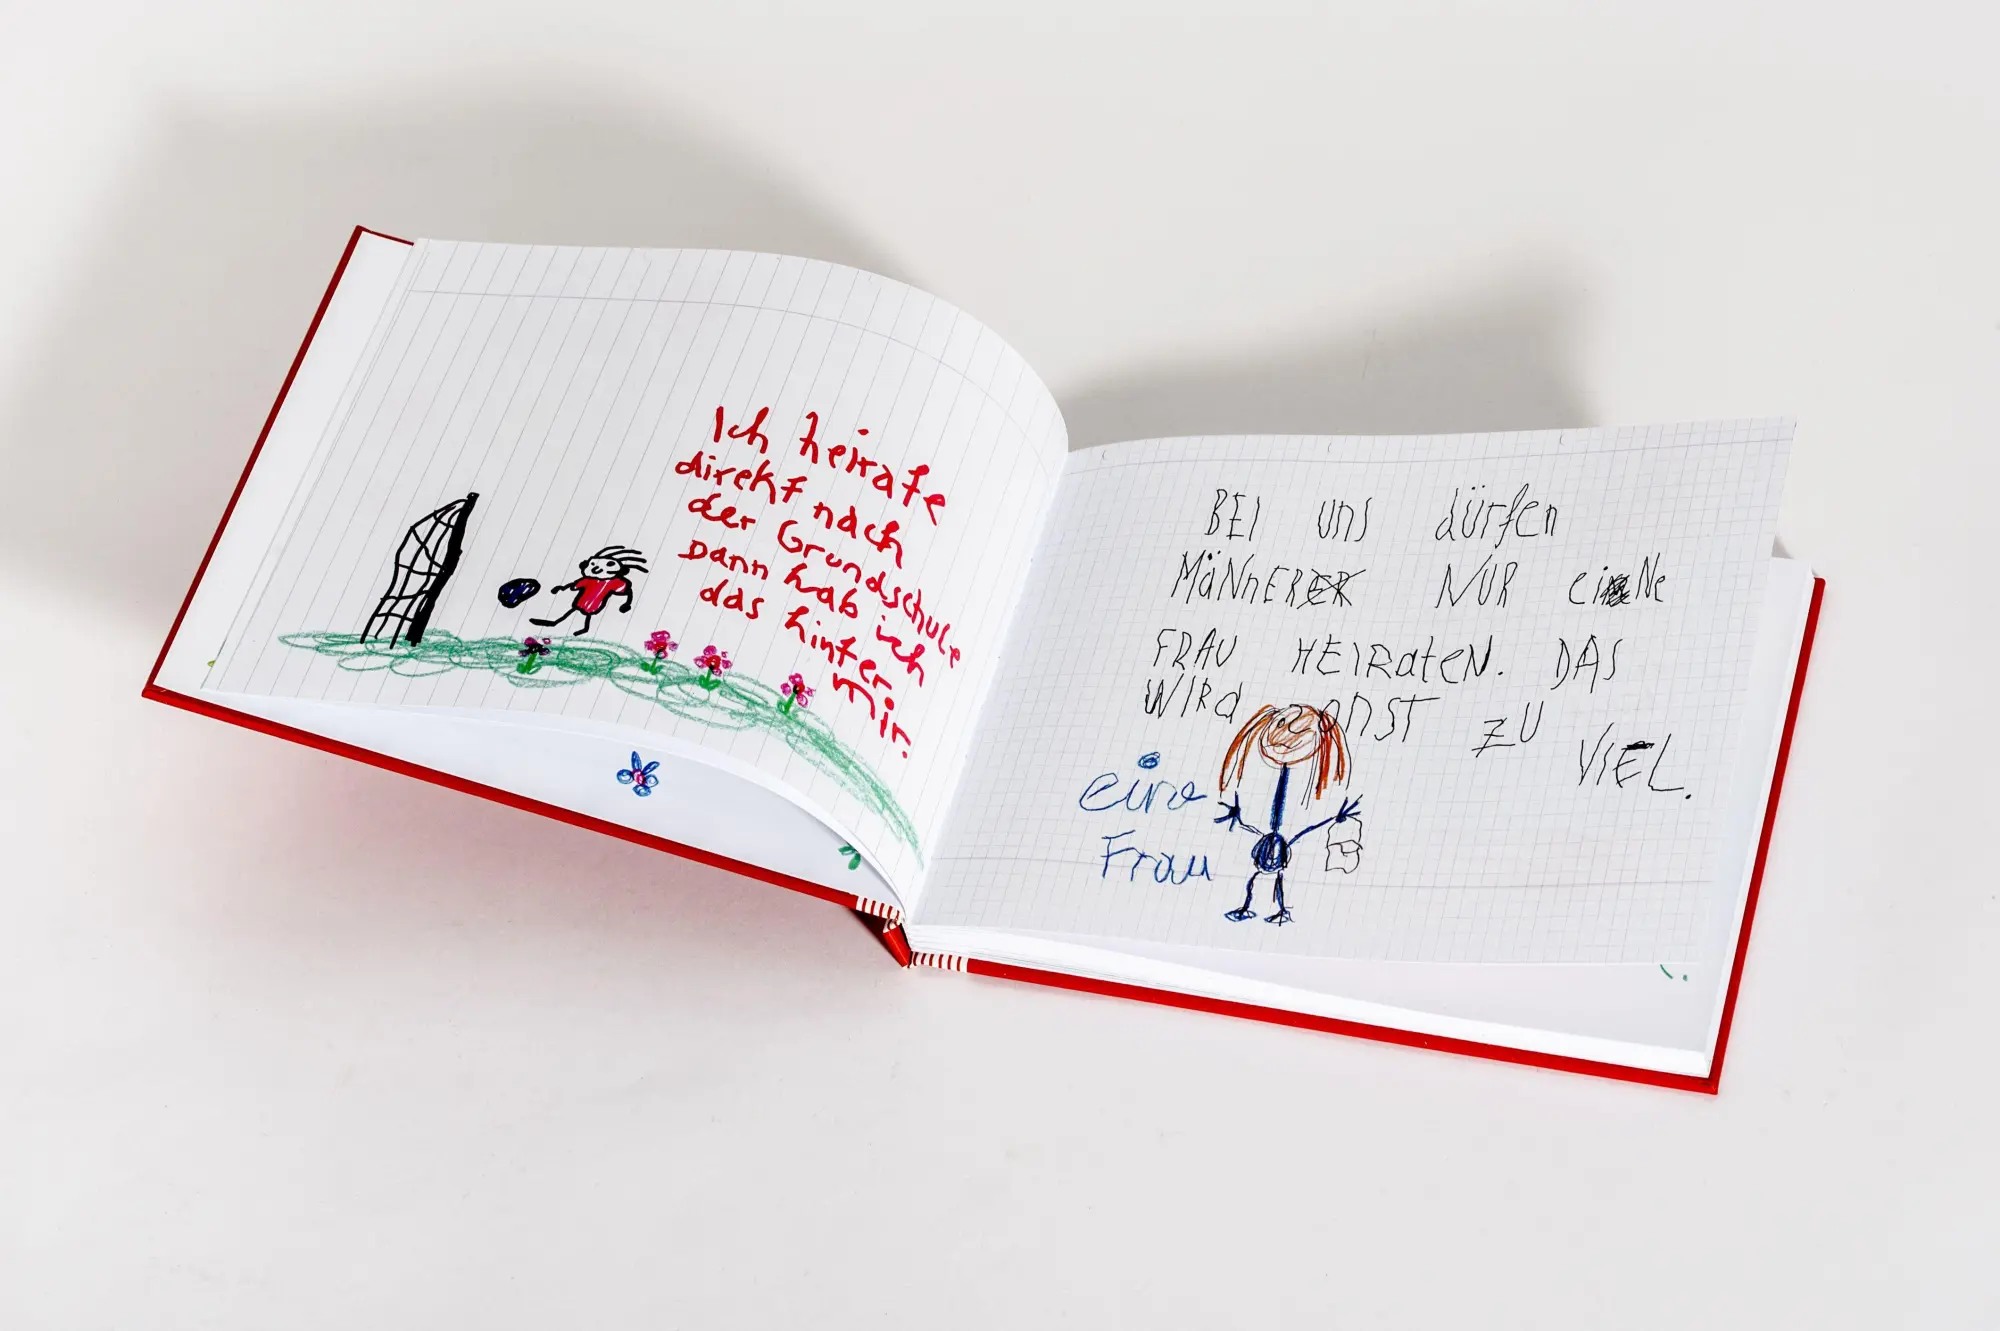 Ich heirate
direkt nach
der Grundschule
Dann hab ich
das hinter
mir.
BEI uns dürfen
MäNNER NUR eiNe
FRAU HEIRateN. DAS
WIRd SONST ZU VIEL.
eine
Frau